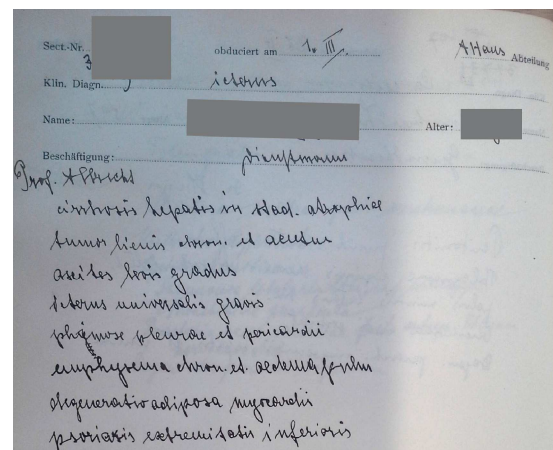 Sect.-Nr. obduciert am 1. III. A Haus Abteilung
3
Klin. Diagn. icterus
Name: Alter:
Beschäftigung: Dienstmann
Prof. Albrecht
cirrhosis hepatis in stad. atrophiae
tumor lienis chron. et acutus
ascites levis gradus
icterus universalis gravis
pleurae et pericardii
emphysema chron. et. oedema
degeneratio adiposa myocardii
psoriasis extremitatis inferioris